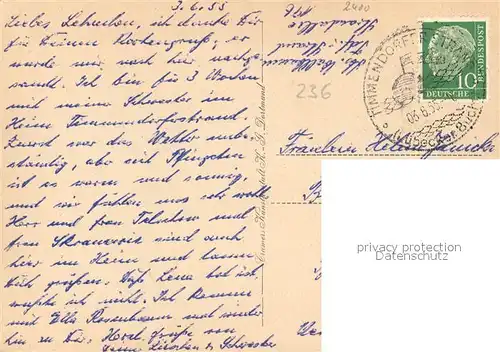 3.6.55
Liebes Lehnchen, ich danke Dir
für Deinen Kartengruß, er
wurde mir nach hier nachge-
sandt. Ich bin für 3 Wochen
mit meiner Schwester im
Heim Timmendorferstrand.
Zuerst war das Wetter unbe-
ständig, aber seit Pfingsten
ist es warm und sonnig,
und wir fühlen uns sehr wohl
Herr und Frau und
Frau sind auch
hier im Heim und lassen
Dich grüßen. Daß Lena tot ist,
wußte ich nicht. Ich komme
mit Ella Rosenbaum mal wieder
zu Dir. Herzl. Grüße von
Deine & Schwester
Cramers Kunstanstalt K.-G. Dortmund
2400
236
TIMMENDORFER STRAND
06.6.55
Lübecker Bucht
10
DEUTSCHE BUNDESPOST
Fräulein
privacy protection
Datenschutz